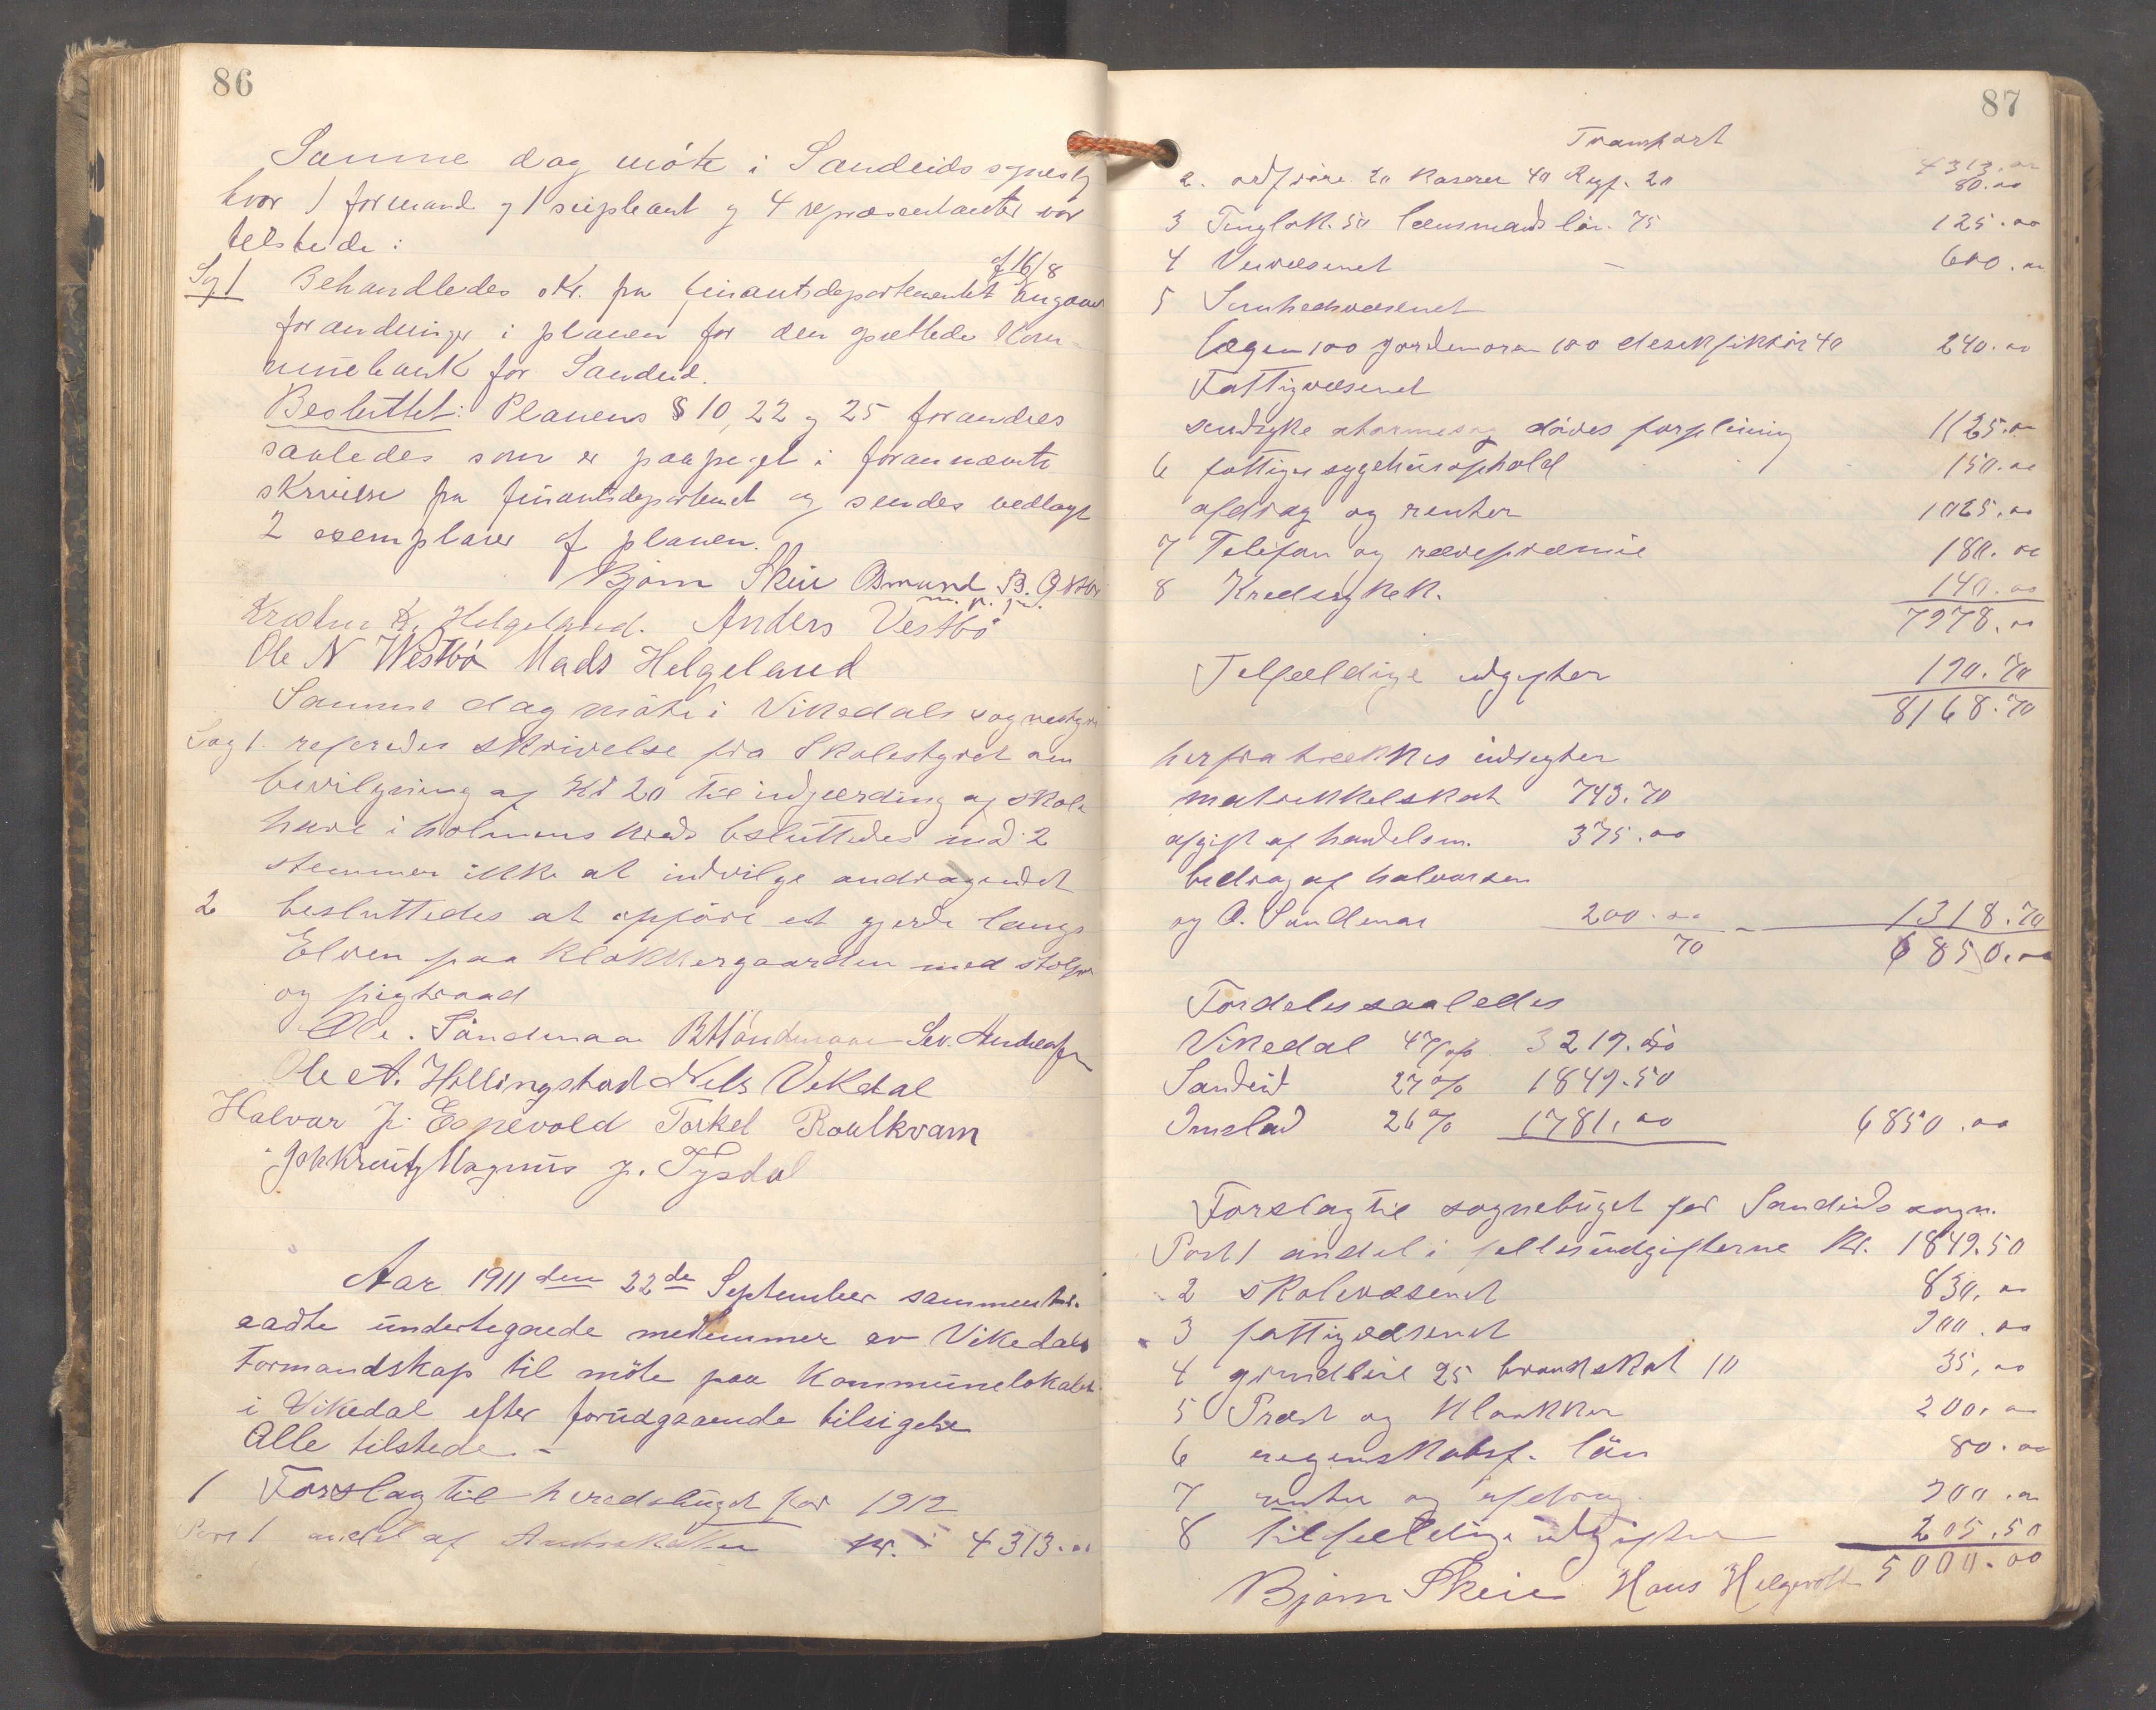 86
Samme dag möte i Sandeids sognesty
hvor 1 formand og 1 supleant og 4 repræsentanter var
tilstede:
Sag 1 Behandledes skr. fra finantsdepartementet af 16/8 angaaen
forandringer i planen for den oprettede Kom-
munebank for Sandeid.
Besluttet: Planens § 10, 22 og 25 forandres
saaledes som er paapeget i forannævnte
skrivelse fra finantsdepartemet og sendes vedlagt
2 exemplarer af planen.
Bjørn Skeie Osmund B.
m. p. p.
Kristen K. Helgeland. Anders Vestbö
Ole N Westbö Mads Helgeland
Samme dag möte i Vikedals sognestyre
Sag 1. referedes skrivelse fra Skolestyret om
bevilgning af Kr 20 til indgjerding af skole
have i holmens kreds besluttedes med 2
stemmer ikke at indvilge andragendet
2 besluttedes at opföre et gjerde langs
Elven paa Klokkergaarden med stolper
og pigtraad
Ole. Söndenaa B H Söndenaa Sev. Andreassen
Ole A. Hellingstad Nels Vikdal
Halvar J. Espevold Torkel Roalkvam
Joh Kreutz Magnus J. Tysdal
Aar 1911 den 22de September sammentr.
aadte undertegnede medlemmer av Vikedals
Formandskap til möte paa Kommunelokalet
i Vikedal efter forudgaaende tilsigelse
Alle tilstede. -
1 Forslag til heredsbuget for 1912
Post 1 andel af Amtsskatten kr. 4313.00
87
Transport 4313.00
2. ordföre 20 Kaserer 40 Regf. 20 80.00
3 Tinglok. 50 lensmands lön. 75 125.00
4 Veivæsenet - 600.00
5 Sunhedsvæsenet
lægen 100 jordemoren 100 desinfektör 40 240.00
Fattigvæsenet
sindsyke döves forpleining 1125.00
6 fattiges sygehusophold 150.00
afdrag og renter 1025.00
7 Telefon og rævepræmie 180.00
8 Kredssykek. 140.00
7978.00
Tilfeldige udgifter 190.70
8168.70
herfra trækkes indtegter
matrikkelskat 743.70
afgift af handelsm. 375.00
bidrag af halvorsen
og O. Söndenaa 200.00 - 1318.70
70 6850.00
Fordeles saaledes
Vikedal 47% 3219.50
Sandeid 27% 1849.50
Imslad 26% 1781.00 6850.00
Forslag til sognebuget for Sandeids sogn.
Post 1 andel i fellesudgifterne Kr. 1849.50
2 skolevæsenet 830.00
3 fattigvæsenet 900.00
4 grundleie 25 brandskat 10 35.00
5 Præst og Klokker 200.00
6 regenskabsf. lön 80.00
7 renter og afdrag 900.00
8 tilfeldige udgifter 205.50
5000.00
Bjørn Skeie Hans Helgevold